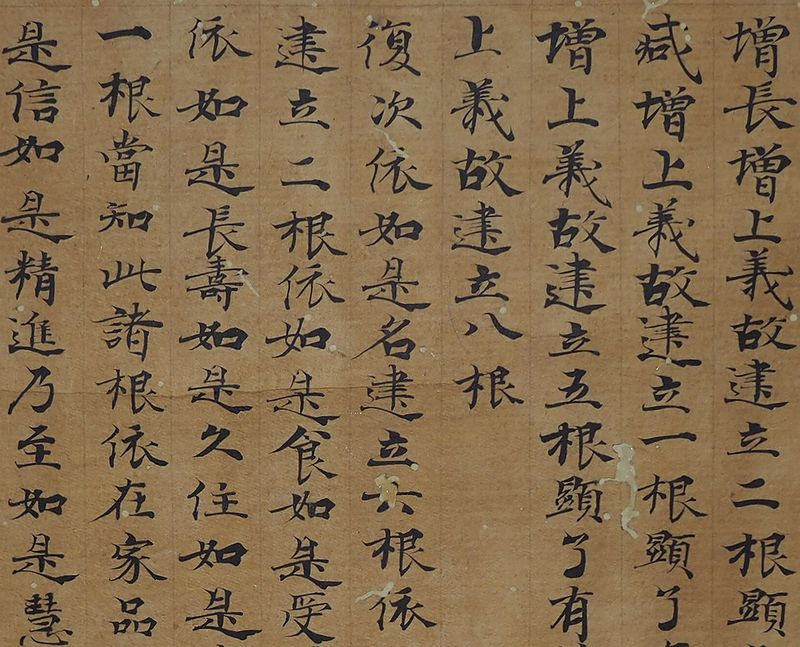 增長增上義故建立二根顯
減增上義故建立一根顯了
增上義故建立五根顯了有
上義故建立八根
復次依如是名建立六根依
建立二根依如是食如是受
依如是長壽如是久住如是
一根當知此諸根依在家品
是信如是精進乃至如是慧